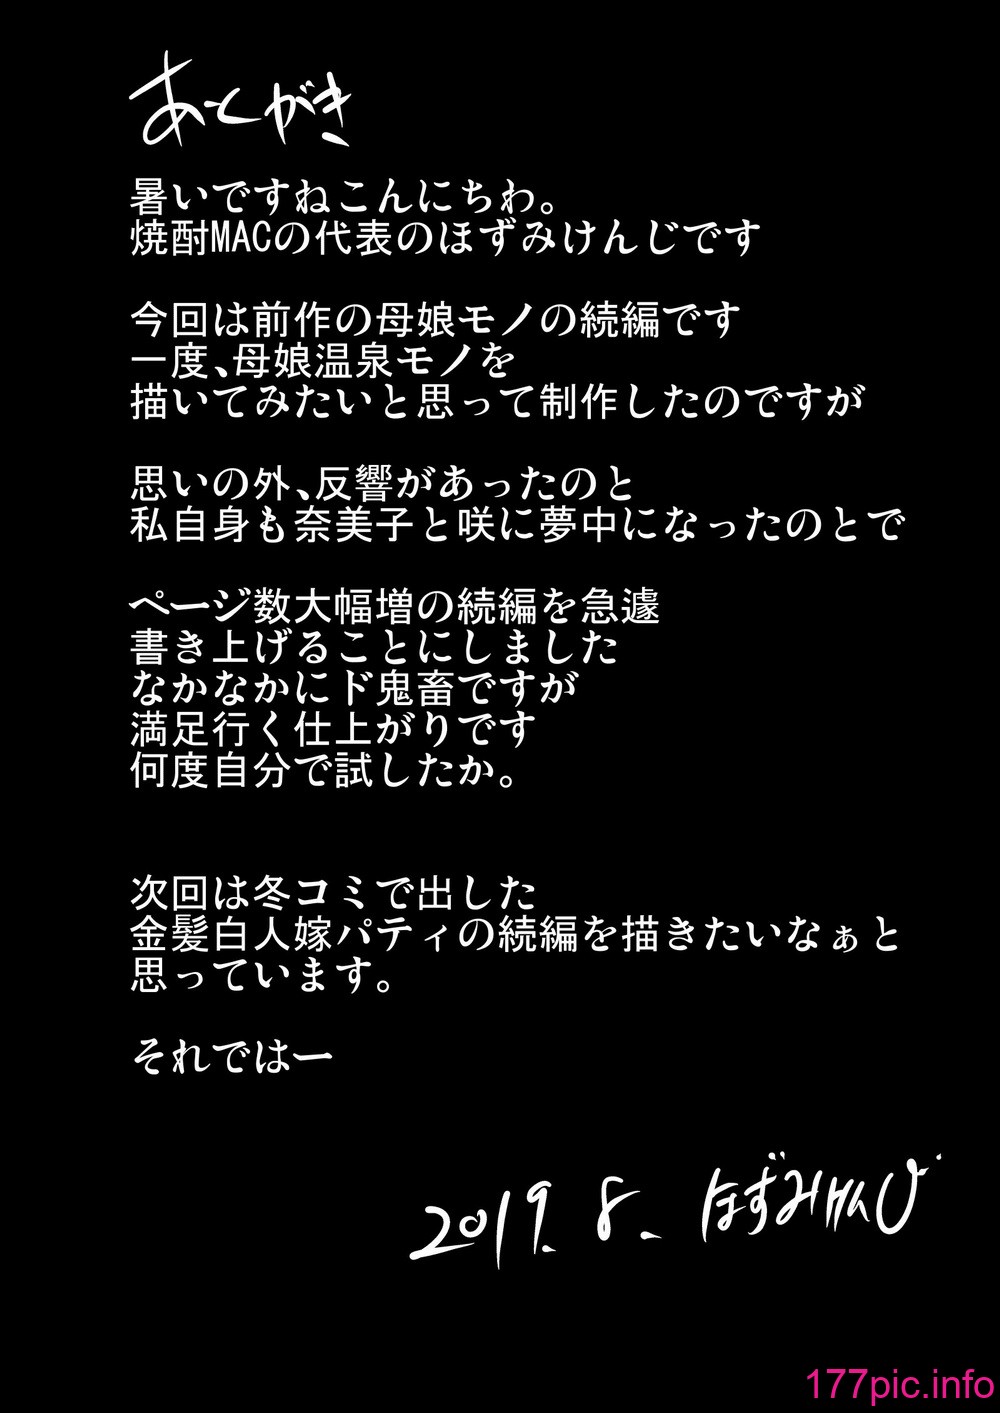 あとがき
暑いですねこんにちわ。
焼酎MACの代表のほずみけんじです
今回は前作の母娘モノの続編です
一度、母娘温泉モノを
描いてみたいと思って制作したのですが
思いの外、反響があったのと
私自身も奈美子と咲に夢中になったのとで
ページ数大幅増の続編を急遽
書き上げることにしました
なかなかにド鬼畜ですが
満足行く仕上がりです
何度自分で試したか。
次回は冬コミで出した
金髪白人嫁パティの続編を描きたいなぁと
思っています。
それではー
2019. 8. ほずみけんじ
177pic.info